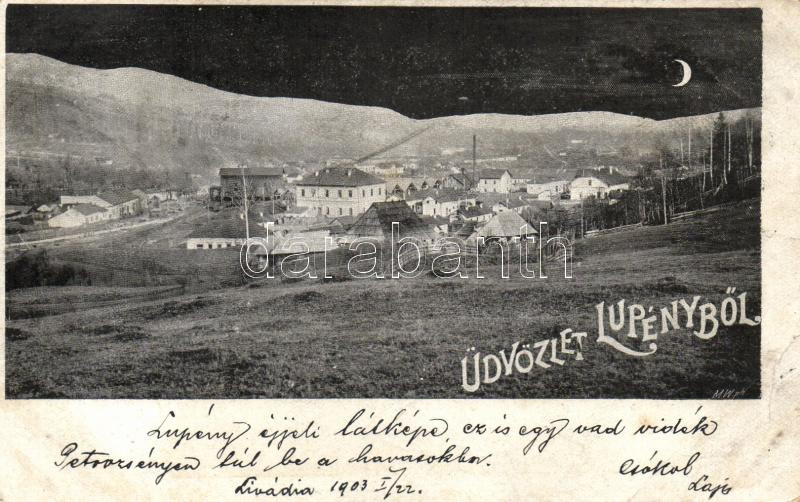 darabanth
ÜDVÖZLET LUPÉNYBŐL
M. W. ph
Lupény éjjeli látképe, ez is egy vad vidék
Petrozsényen túl be a havasokba.
Csókol
Livádia 1903 I/22.
Lajos